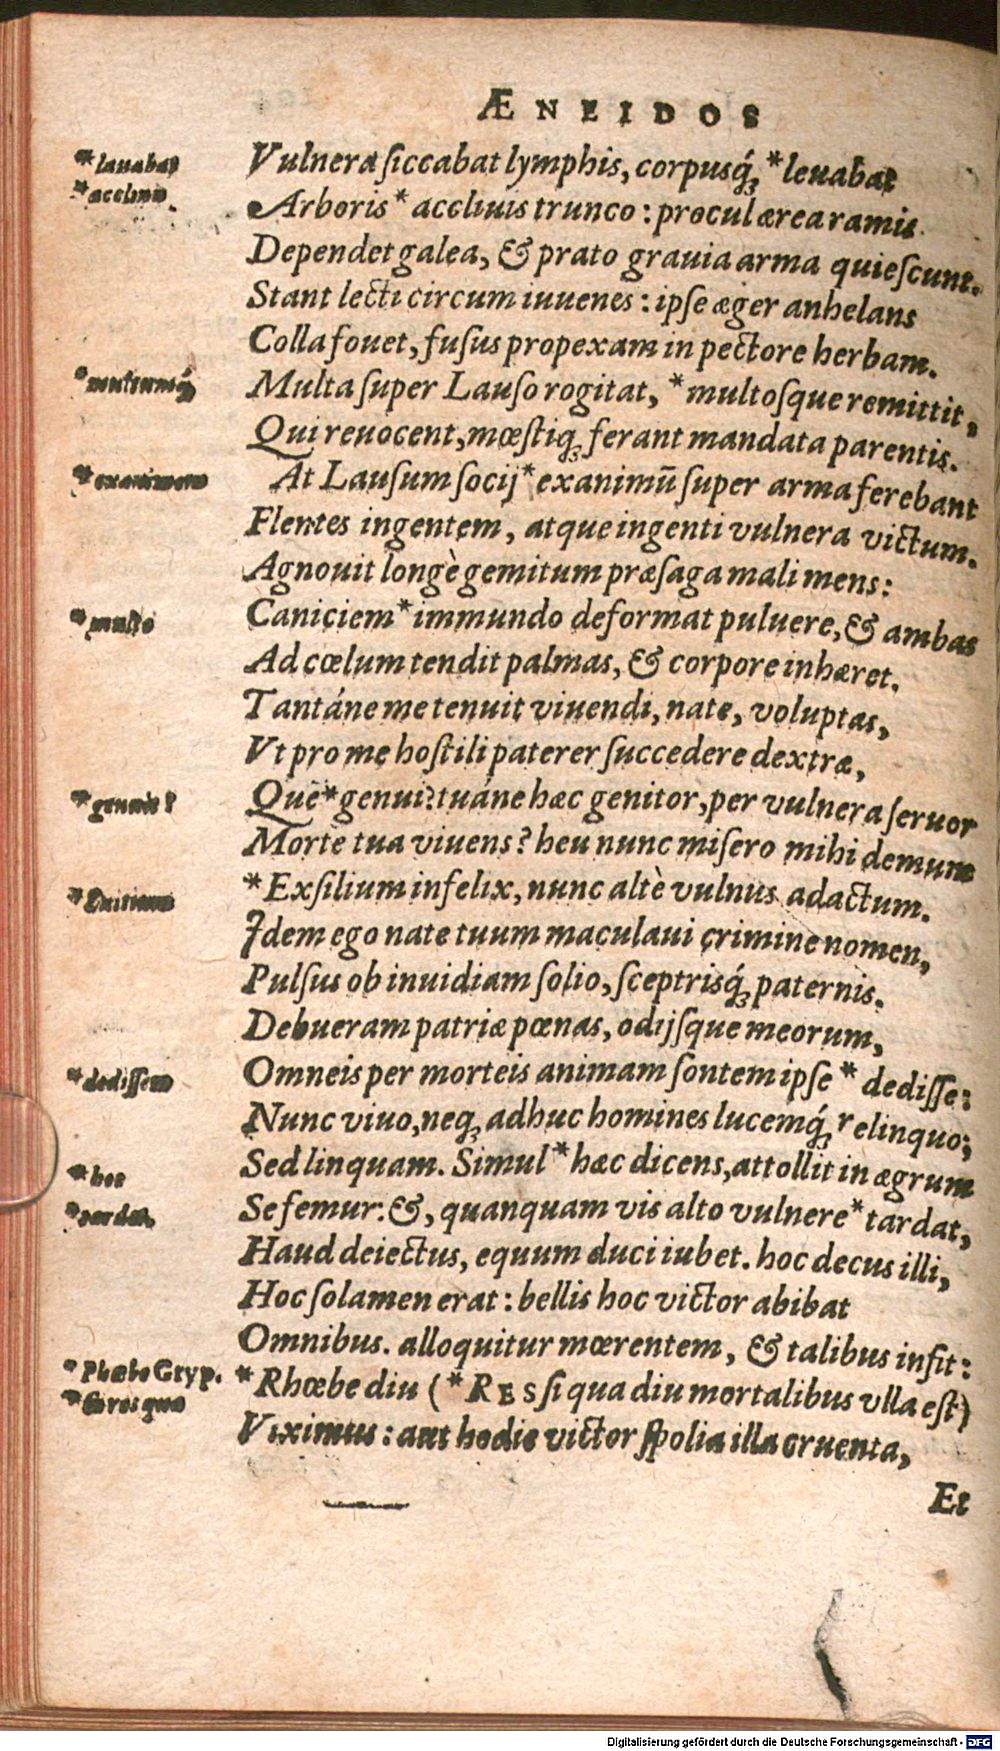 ÆNEIDOS
*lauabat
*acclinis
Vulnera ſiccabat lymphis, corpusq́; *leuabat
Arboris *accliuis trunco: procul ærea ramis
Dependet galea, & prato grauia arma quieſcunt.
Stant lecti circum iuuenes: ipſe æger anhelans
Colla fouet, fuſus propexam in pectore herbam.
*multumq́;
Multa ſuper Lauſo rogitat, *multosque remittit,
Qui reuocent, mœſtiq; ferant mandata parentis.
*exanimem
At Lauſum ſocij *exanimū ſuper arma ferebant
Flentes ingentem, atque ingenti vulnera victum.
Agnouit longè gemitum præſaga mali mens:
*multo
Caniciem *immundo deformat puluere, & ambas
Ad cœlum tendit palmas, & corpore inhæret.
Tantáne me tenuit viuendi, nate, voluptas,
Vt pro me hoſtili paterer ſuccedere dextræ,
*genuis?
Quē *genui? tuáne hæc genitor, per vulnera ſeruor
Morte tua viuens? heu nunc miſero mihi demum
*Exitium
*Exſilium infelix, nunc altè vulnus adactum.
Idem ego nate tuum maculaui crimine nomen,
Pulſus ob inuidiam ſolio, ſceptrisq́; paternis.
Debueram patriæ pœnas, odijſque meorum,
*dediſſem
Omneis per morteis animam ſontem ipſe *dediſſe:
Nunc viuo, neq; adhuc homines lucemq́; relinquo;
*hoc
Sed linquam. Simul *hæc dicens, attollit in ægrum
*tardet,
Se femur: &, quanquam vis alto vulnere *tardat,
Haud deiectus, equum duci iubet. hoc decus illi,
Hoc ſolamen erat: bellis hoc victor abibat
Omnibus. alloquitur mœrentem, & talibus infit:
*Phœbe Gryp.
*Rhœbe diu (*RES ſi qua diu mortalibus vlla eſt)
Viximus: aut hodie victor ſpolia illa cruenta,
Et
Digitalisierung gefördert durch die Deutsche Forschungsgemeinschaft - DFG